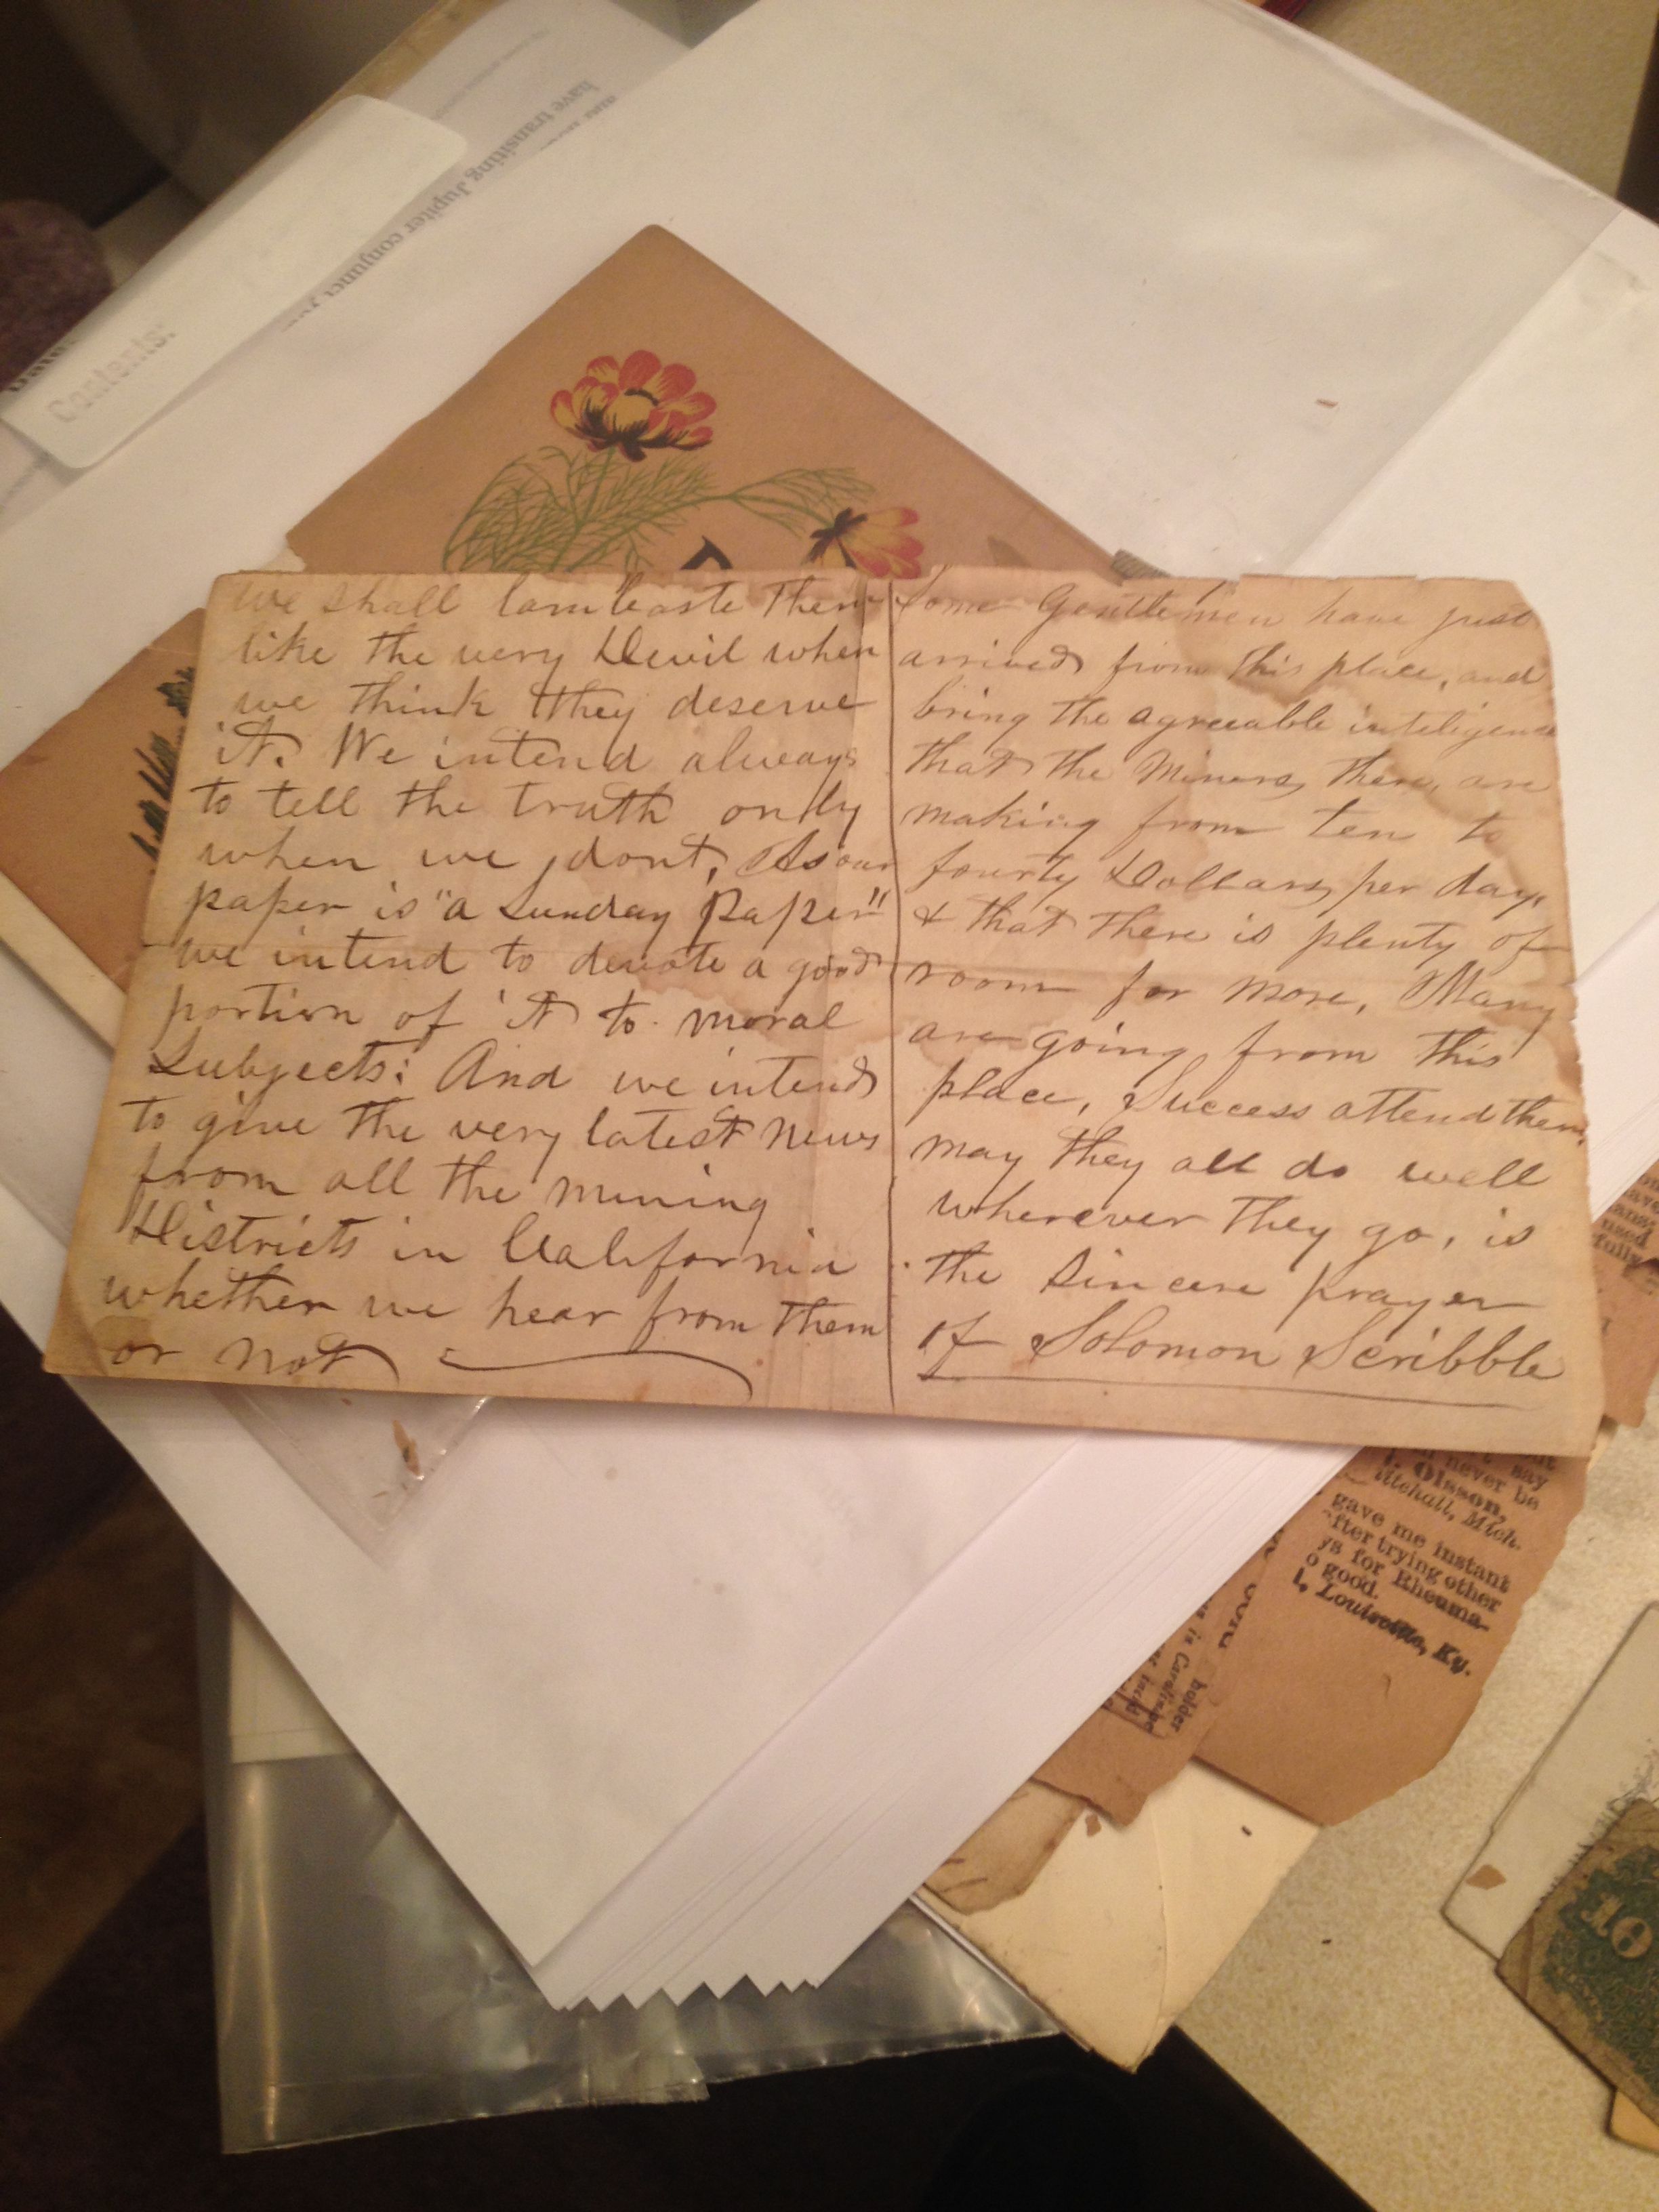 we shall lambaste them
like the very Devil when
we think they deserve
it. We intend always
to tell the truth only
when we dont, As our
paper is "a Sunday Paper"
we intend to devote a good
portion of it to moral
Subjects: And we intend
to give the very latest news
from all the mining
Districts in California
whether we hear from them
or not
Some Gentlemen have just
arrived from this place, and
bring the agreeable inteligence
that the Miners there, are
making from ten to
fourty Dollars, per day,
& that there is plenty of
room for more, Many
are going from this
place, Success attend them,
may they all do well
wherever they go, is
the sincere prayer
of Solomon Scribble
Contents:
have transiting Jupiter conjunct
never be
say
Olsson,
Mich.
gave me instant
fter trying other
ys for Rheuma-
o good.
Louisville, Ky.
used
fully
is Carolina
holder
10